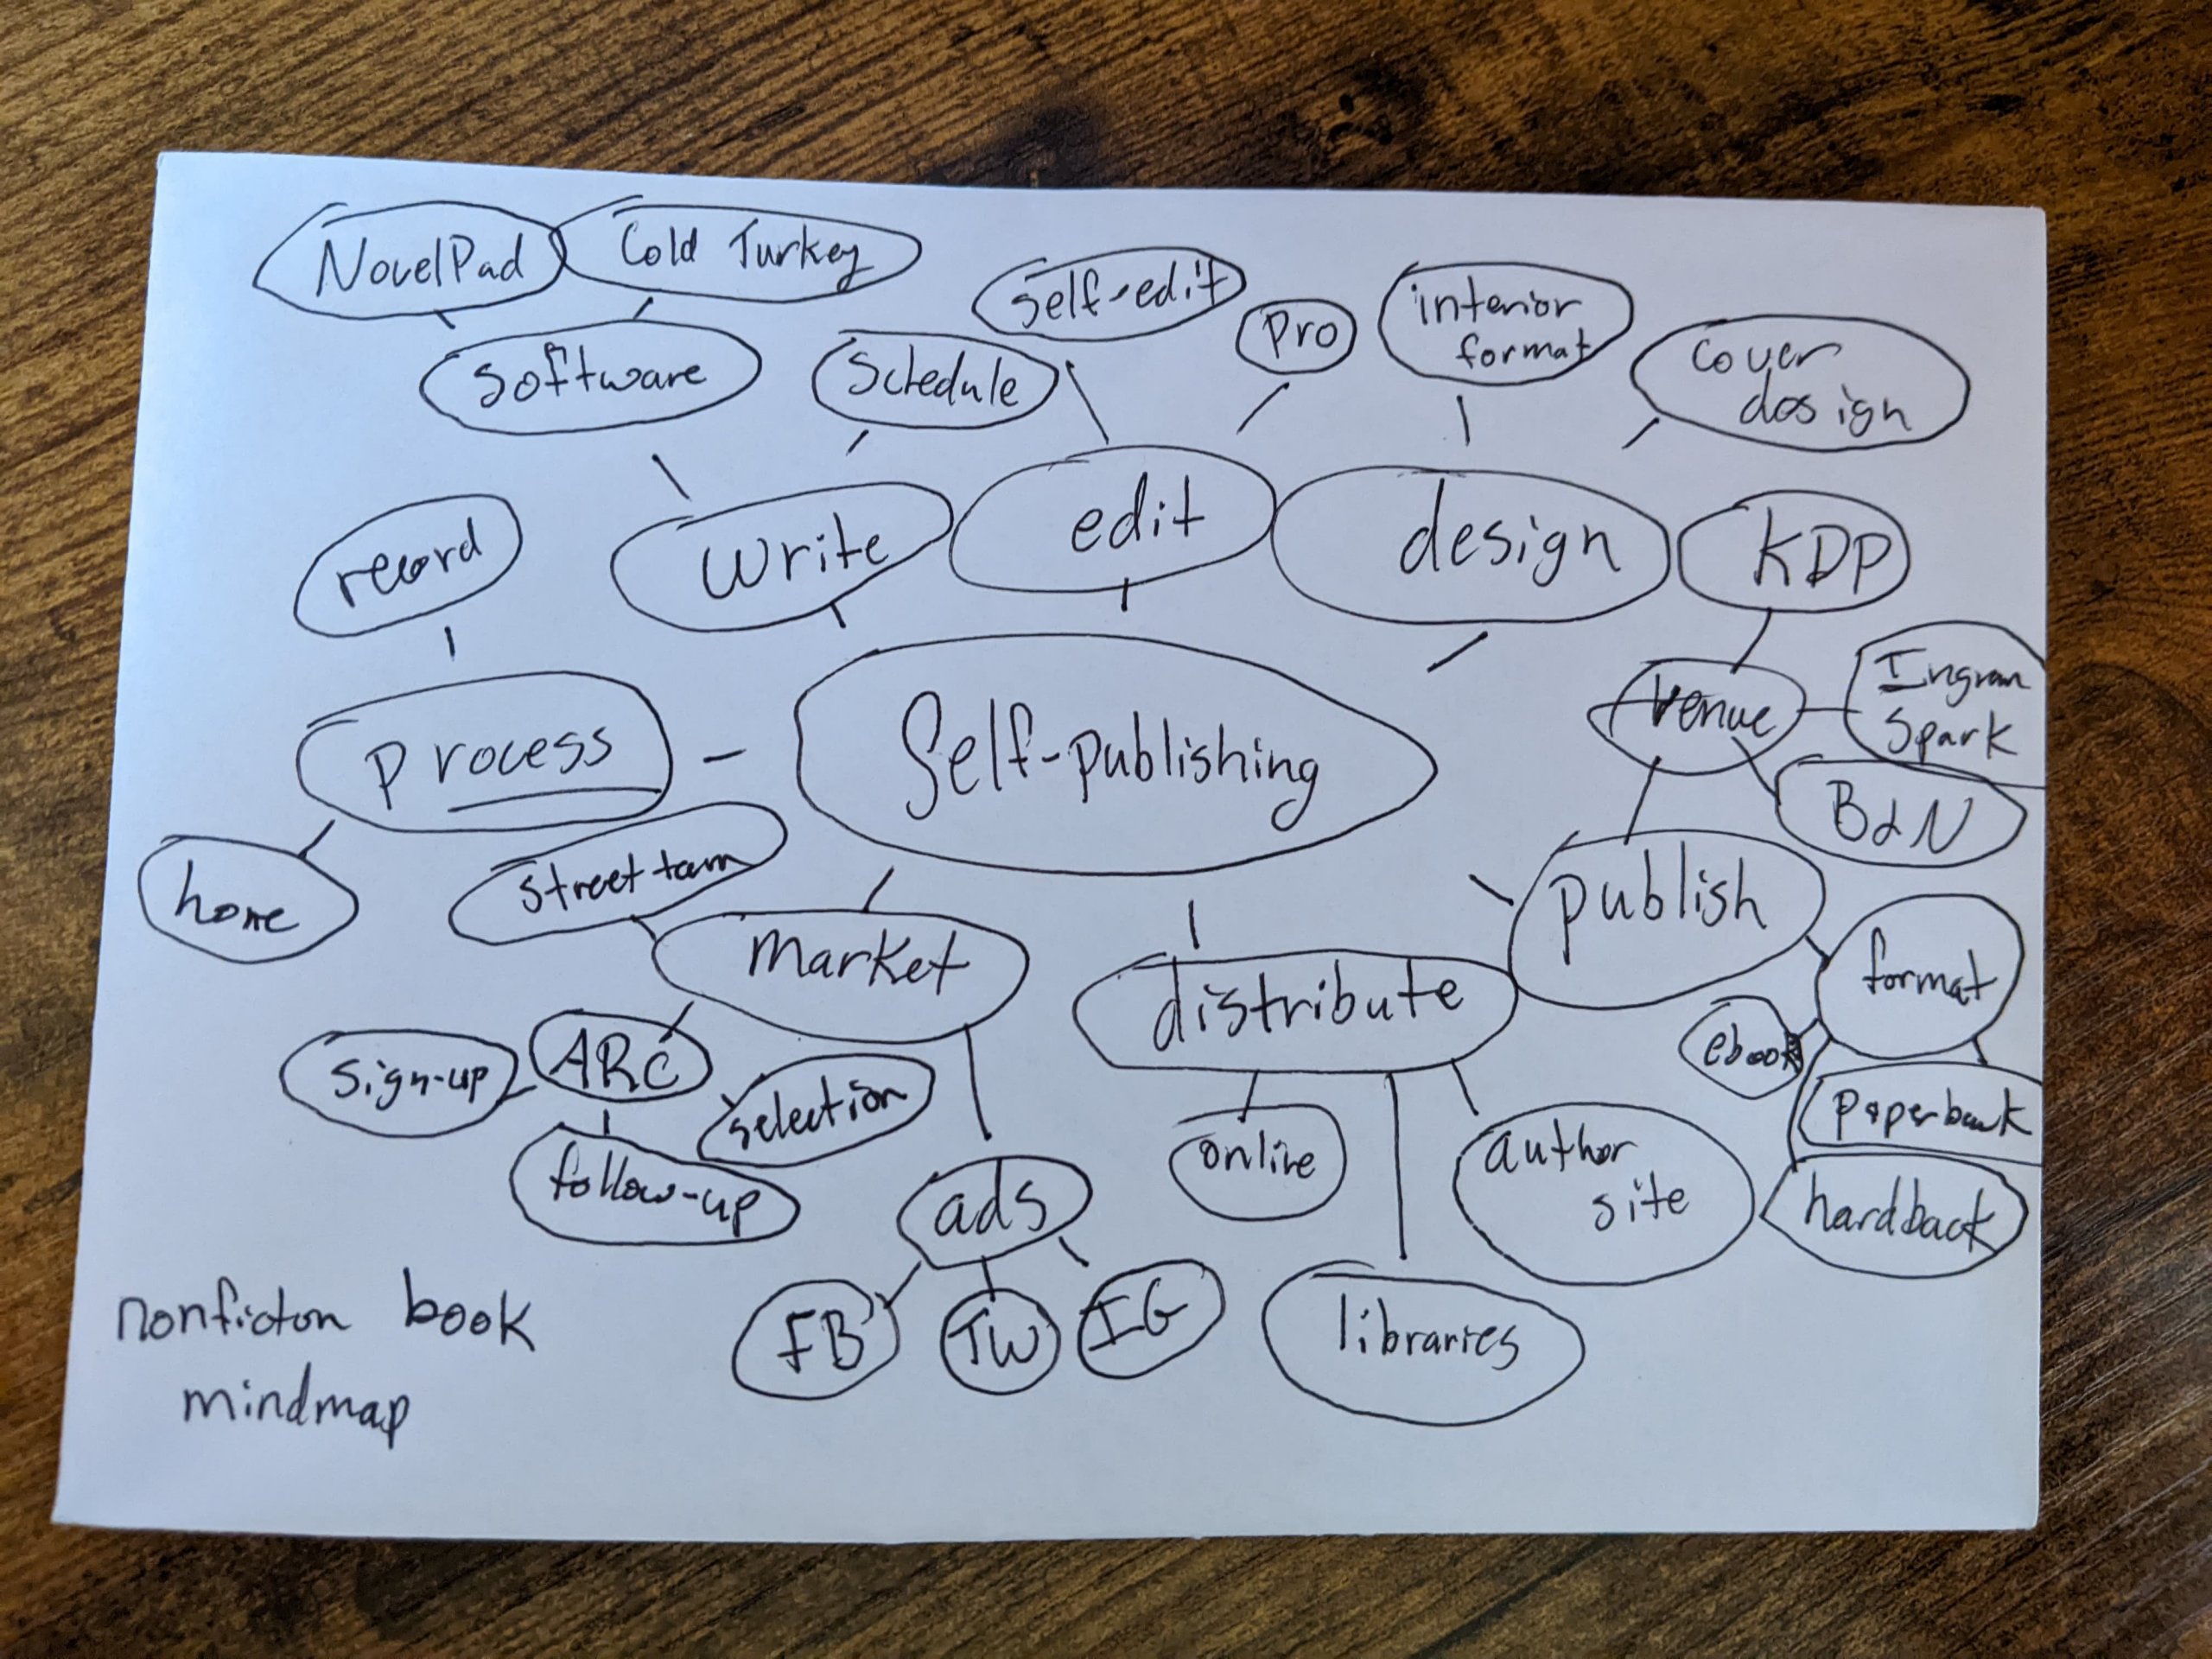 NovelPad
Cold Turkey
self-edit
pro
interior
format
cover
design
software
schedule
write
edit
design
KDP
record
process
Self-publishing
venue
Ingram
Spark
B&N
home
street team
market
distribute
publish
format
ebook
paperback
hardback
sign-up
ARC
selection
follow-up
ads
online
author
site
FB
TW
IG
libraries
nonfiction book
mindmap